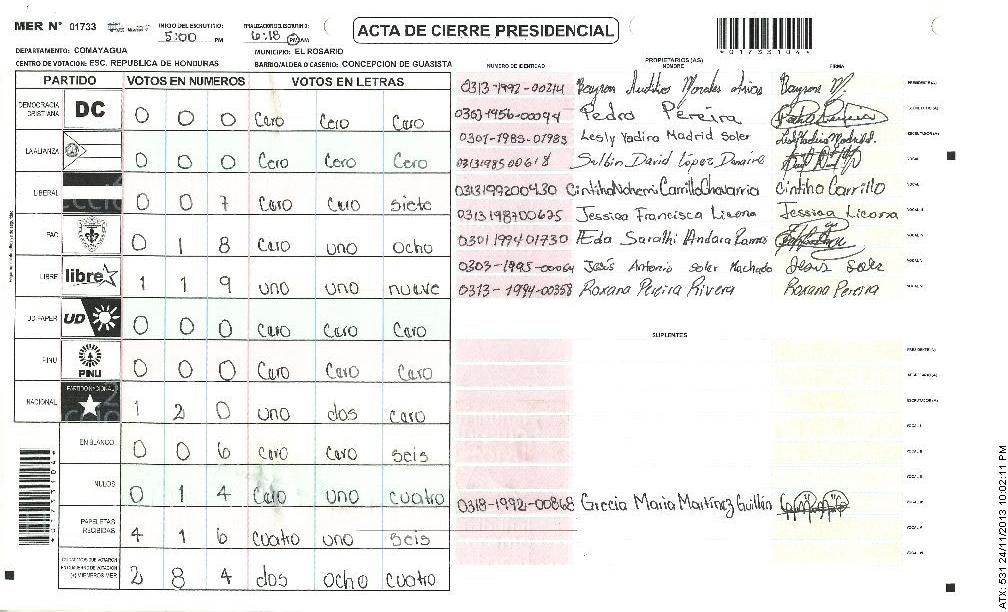 MER N° 01733 INICIO DEL ESCRUTINIO 5:00 PM FINALIZACION DEL ESCRUTINIO 6:18 PM
ACTA DE CIERRE PRESIDENCIAL
01733104
DEPARTAMENTO: COMAYAGUA MUNICIPIO: EL ROSARIO
CENTRO DE VOTACION: ESC. REPUBLICA DE HONDURAS BARRIO/ALDEA O CASERIO: CONCEPCION DE GUASISTA
PARTIDO VOTOS EN NUMEROS VOTOS EN LETRAS
DEMOCRACIA CRISTIANA DC 0 0 0 Cero Cero Cero
LA ALIANZA 0 0 0 Cero Cero Cero
LIBERAL 0 0 7 Cero Cero siete
PAC 0 1 8 Cero uno ocho
LIBRE libre 1 1 9 uno uno nueve
UD-FAPER UD 0 0 0 Cero Cero Cero
PINU PINU 0 0 0 Cero Cero Cero
NACIONAL PARTIDO NACIONAL 1 2 0 uno dos cero
EN BLANCO 0 0 6 Cero Cero seis
NULOS 0 1 4 Cero uno cuatro
PAPELETAS RECIBIDAS 4 1 6 cuatro uno seis
2 8 4 dos ocho cuatro
01733104
PROPIETARIOS (AS)
NUMERO DE IDENTIDAD NOMBRE FIRMA
0313-1992-00214 Morales PRESIDENTE (A)
Pedro Pereira SECRETARIO (A)
0301-1983-01983 Lesly Yadira Madrid Soler Lesly Yadira Madrid S. ESCRUTADOR (A)
0313198500618 David López VOCAL
0313199200430 Carrillo Chavarria Cintiha Carrillo
0313198700625 Jessica Francisca Licona Jessica Licona
0301199401730 Eda Sarahi Andara Ramos
0303-1995-00064 Jesús Antonio Soler Machado Jesus Soler
0313-1994-00358 Roxana Pereira Rivera Roxana Pereira
SUPLENTES
PRESIDENTE (A)
SECRETARIO (A)
ESCRUTADOR (A)
0318-1992-00868 Grecia Maria Martínez Guillén
ATX: 531 24/11/2013 10:02:11 PM